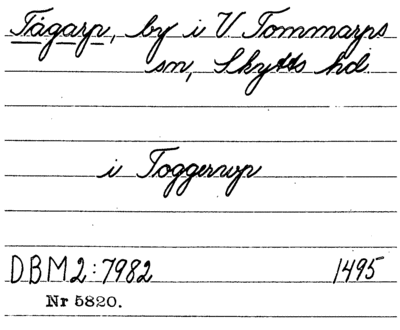 Tågarp, by i V Tommarps
sn, Skytts hd.
i Toggerup
DBM2:7982 1495
Nr 5820.